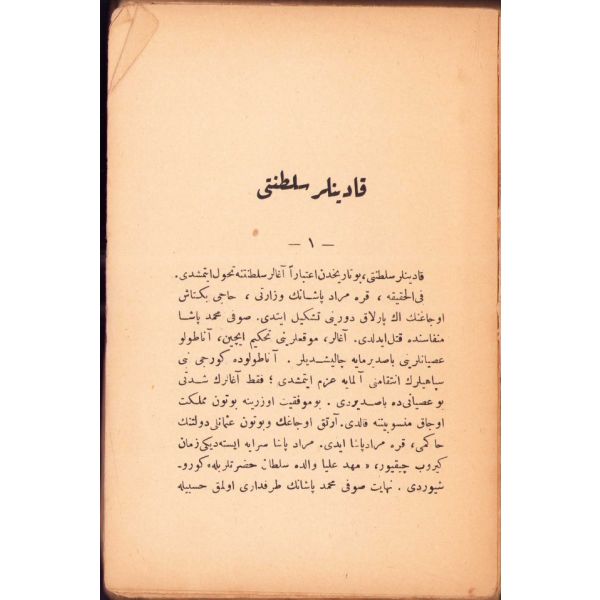 قادینلر سلطنتی
— ١ —
قادینلر سلطنتی، بو تاریخدن اعتباراً آغالر سلطنتنه تحول ایتمشدی.
فی الحقیقه ، قره مراد پاشانك وزارتی ، حاجی بكتاش
اوجاغنك اك پارلاق دورینی تشكیل ایتدی. صوفی محمد پاشا
منفاسنده قتل ایدلدی. آغالر، موقعلرینی تحكیم ایچین، آناطولو
عصیانلرینی باصدیرمایه چالیشدیلر . آناطولوده كورجی نبی
سپاهیلرك انتقامنی آلمایه عزم ایتمشدی ؛ فقط آغالرك شدتی
بو عصیانی ده باصدیردی . بو موفقیت اوزرینه بوتون مملكت
اوجاق منسوبیتنه قالدی. آرتق اوجاغك و بوتون عثمانلی دولتنك
حاكمی، قره مراد پاشا ایدی. مراد پاشا سرایه ایسته دیكی زمان
كیروب چیقیور، « مهد علیا والده سلطان حضرتلریله» كورو-
شیوردی . نهایت صوفی محمد پاشانك طرفداری اولمق حسبیله